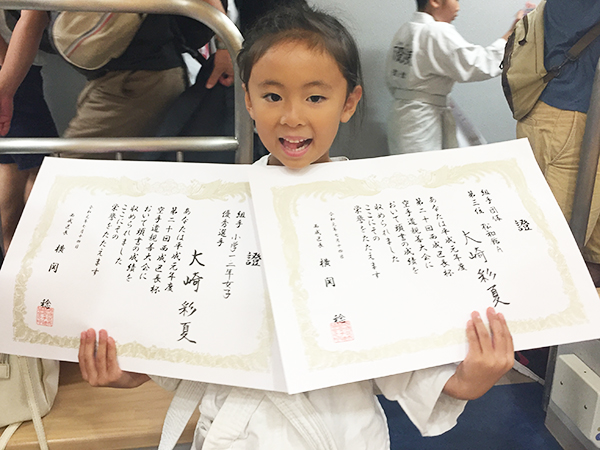 證
組手 小学一二年女子
優秀選手
大崎彩夏
あなたは 元年度
第二十回西成区長杯
空手道 大会に
おいて頭書の成績を
収められました
ここにその
栄誉をたたえます
西成区長 横関 稔
證
組手団体
第三位
大崎彩夏
あなたは 元年度
第二十回西成区長杯
空手道 大会に
おいて頭書の成績を
収められました
ここにその
栄誉をたたえます
西成区長 横関 稔